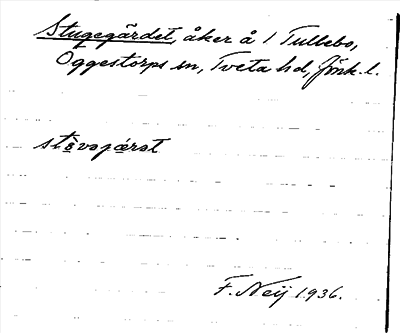 Stugegärdet, åker å 1 Tullebo,
Öggestorps sn, Tveta hd, Jönk. l.
F. Neij 1936.